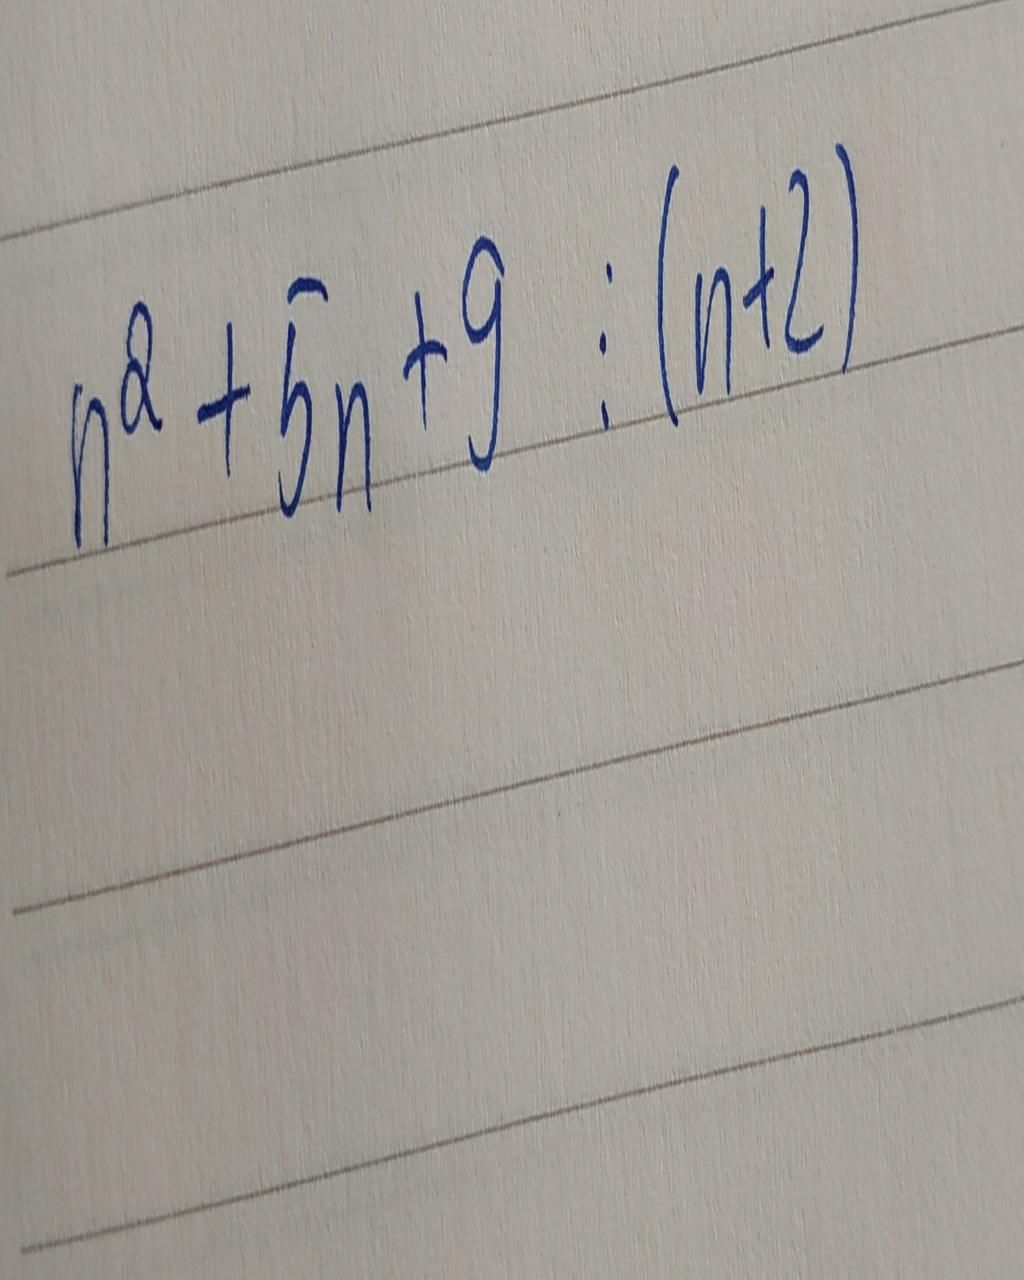 n² + 5n + 9 ⋮ (n+2)